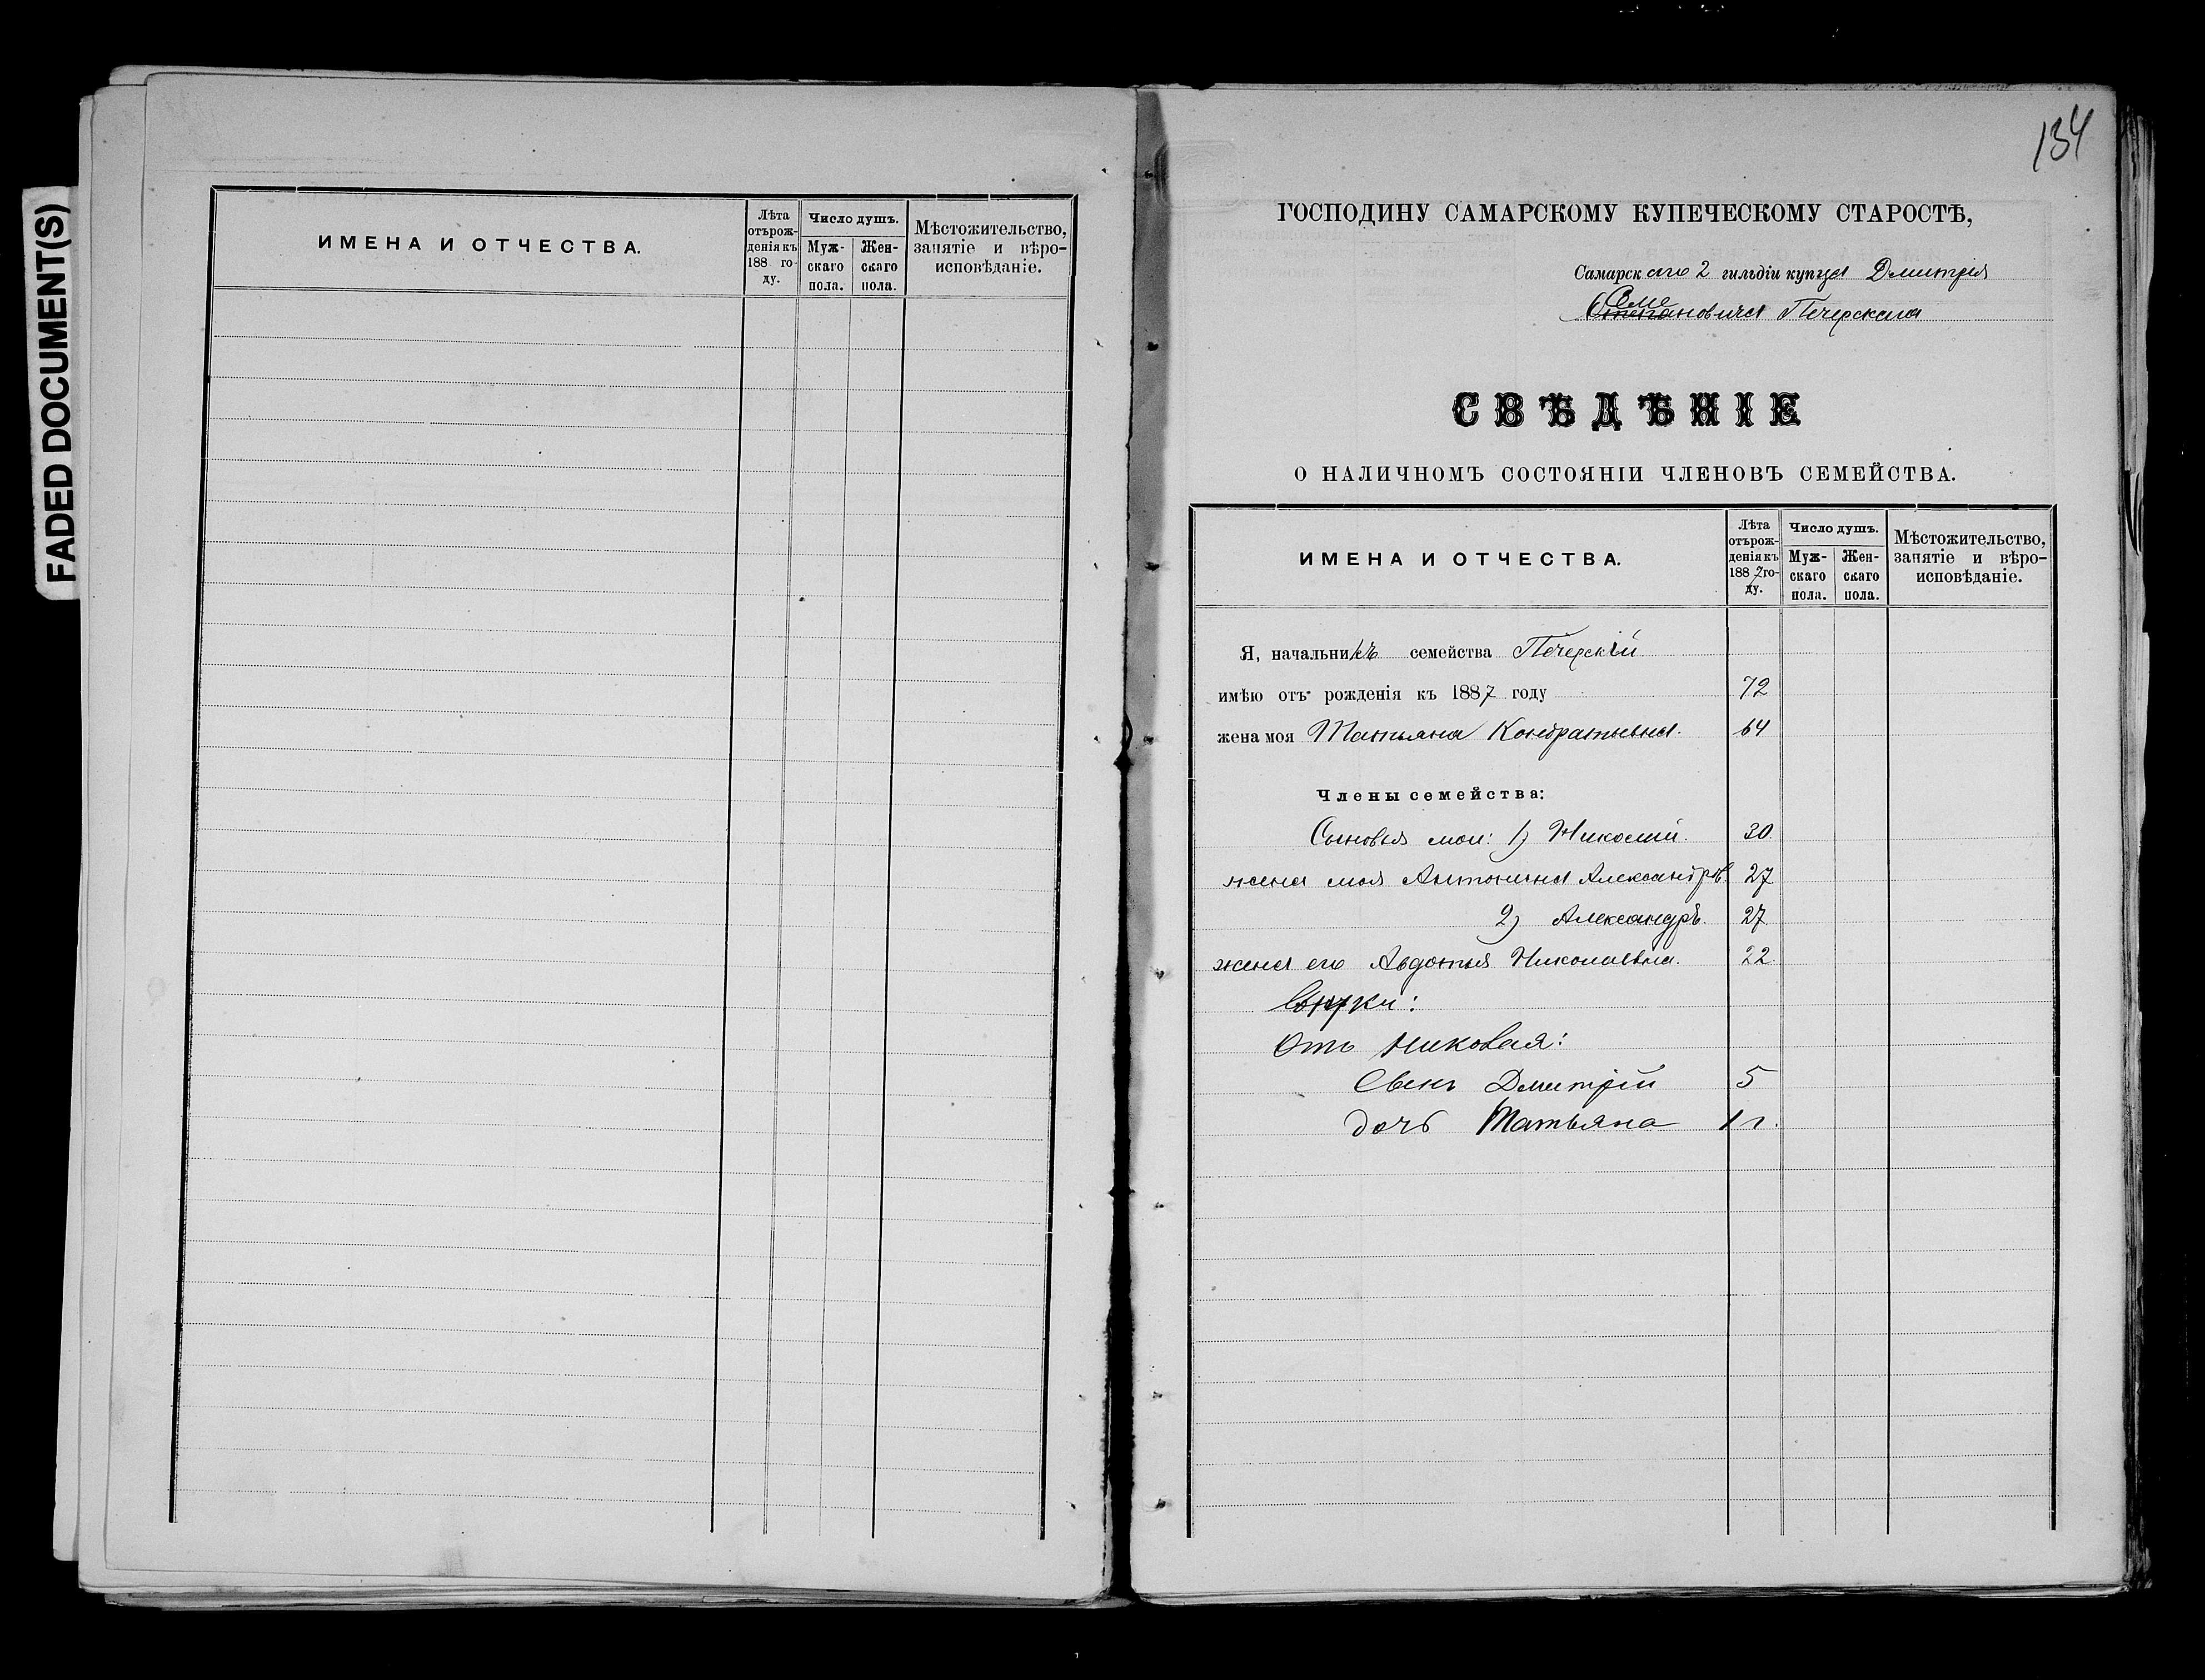 FADED DOCUMENT(S)
ИМЕНА И ОТЧЕСТВА.
Лѣта отърожденія къ 188 году.
Число душъ.
Мужскаго пола.
Женскаго пола.
Мѣстожительство, занятіе и вѣроисповѣданіе.
134
ГОСПОДИНУ САМАРСКОМУ КУПЕЧЕСКОМУ СТАРОСТѢ,
Самарскаго 2 гильдіи купца Дмитрія
Семеновича Печерскаго
СВѢДѢНІЕ
О НАЛИЧНОМЪ СОСТОЯНІИ ЧЛЕНОВЪ СЕМЕЙСТВА.
ИМЕНА И ОТЧЕСТВА.
Лѣта отърожденія къ 1887 году.
Число душъ.
Мужскаго пола.
Женскаго пола.
Мѣстожительство, занятіе и вѣроисповѣданіе.
Я, начальникъ семейства Печерскій
имѣю отъ рожденія къ 1887 году 72
жена моя Татьяна Кондратьевна. 64
Члены семейства:
Сыновья мои: 1) Николай. 30
жена моя Антонина Александров. 27
2) Александръ. 27
жена его Авдотья Николаевна. 22
Внуки:
Отъ Николая:
Сынъ Дмитрій 5
дочь Татьяна 1 г.